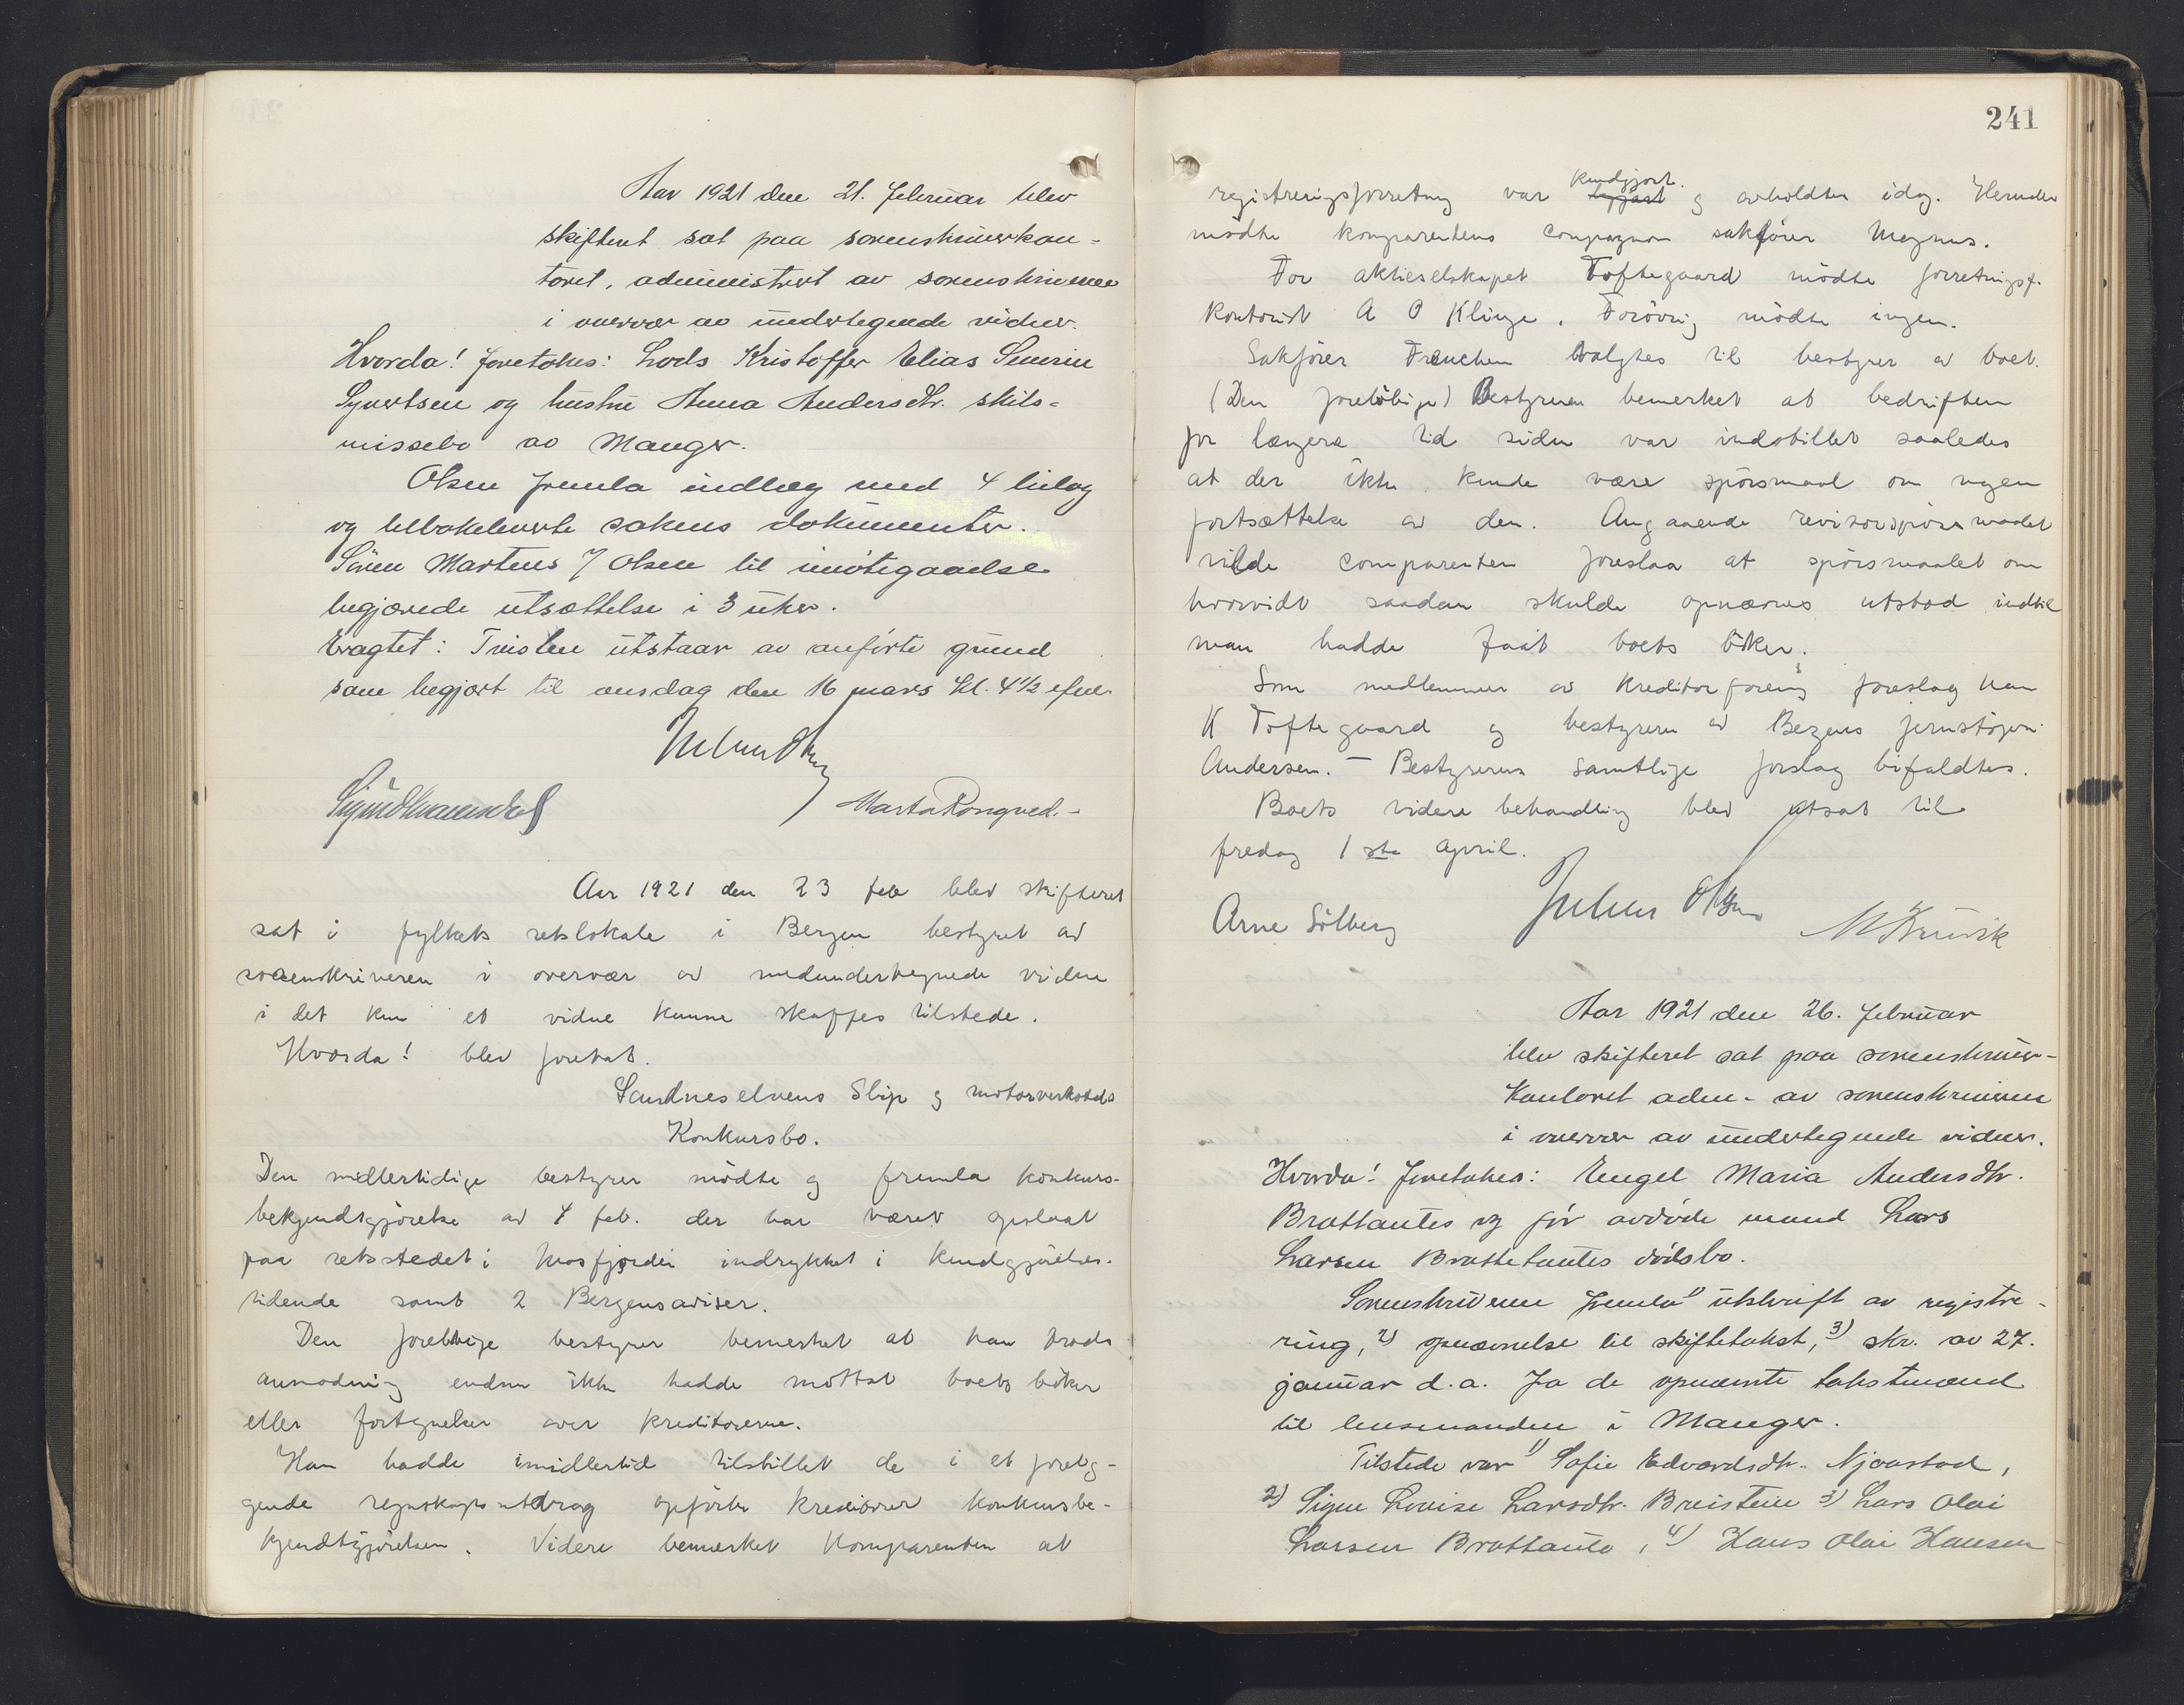 Aar 1921 den 21. februar blev
skifteret sat paa sorenskriverkon-
toret, administrert av sorenskriveren
i overvær av undertegnede vidner.
Hvorda! foretokes: Lods Kristoffer Elias Severin
Syvertsen og hustru Anna Andersdtr. skils-
missebo av Manger.
Olsen fremla indlæg med 4 bilag
og tilbakeleverte sakens dokumenter.
Martens / Olsen til imøtegaaelse
begjærede utsættelse i 3 uker.
Eragtet: Tvisten utstaar av anførte grund
som begjært til onsdag den 16 mars kl. 4 1/2 efm.
Marta Rongved.-
Aar 1921 den 23 feb blev skifteret
sat i fylkets retslokale i Bergen bestyret av
sorenskriveren i overvær av medundertegnede vidne
i det kun et vidne kunne skaffes tilstede.
Hvorda! blev foretat.
Sandneselvens Slip og motorverksteds
Konkursbo.
Den midlertidige bestyrer mødte og fremla konkurs-
bekjendtgjørelse av 4 feb. der har været opslaat
paa retsstedet i indrykket i kundgjørelses-
tidende samt 2 Bergensaviser.
Den foreløbige bestyrer bemerket at han trods
anmodning endnu ikke hadde mottat boets bøker
eller fortegnelser over kreditorerne.
Han hadde imidlertid tilstillet de i et forelig-
gende regnskapsutdrag opførte kreditorer konkursbe-
kjendtgjørelsen. Videre bemerket komparenten at
241
registreringsforretning var kundgjort og avholdtes idag. Herunder
mødte komparentens compagnon sakfører Magnus.
For aktieselskapet Toftegaard mødte forretningsf.
kontorist A O Klinge. Forøvrig mødte ingen.
Sakfører valgtes til bestyrer av boet.
(Den foreløbige) Bestyreren bemerket at bedriften
for længere tid siden var indstillet saaledes
at der ikke kunde være spørsmaal om nogen
fortsættelse av den. Angaaende revisorspørsmaalet
vilde comparenten foreslaa at spørsmaalet om
hvorvidt saadan skulde opnævnes utstod indtil
man hadde faat boets bøker.
Som medlemmer av kreditorforening foreslog han
K Toftegaard og bestyreren av Bergens jernstøperi
Andersen. – Bestyrerens samtlige forslag bifaldtes.
Boets videre behandling blev utsat til
fredag 1ste April.
Arne Sölberg Julius Olsen
Aar 1921 den 26. februar
blev skifteret sat paa sorenskriver-
kontoret adm. av sorenskriveren
i overvær av undertegnede vidner.
Hvorda! foretokes: Engel Maria Andersdtr.
Brattautes og før avdøde mand Lars
Larsen Brattetautes dødsbo.
Sorenskriveren fremla 1) utskrift av registre-
ring, 2) opnævnelse til skiftetakst, 3) skr. av 27.
januar d.a. fra de opnævnte takstmænd
til lensmanden i Manger.
Tilstede var 1) Sofie Edvardsdtr. Njaastad,
2) Signe Lovise Larsdtr. Breistein 3) Lars Olai
Larsen Brattaule, 4) Hans Olai Hansen